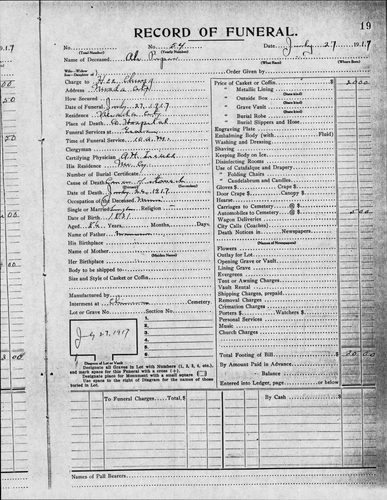 19
RECORD OF FUNERAL.
No. No. 54 Date July 27 1917
(Total Number) (Yearly Number)
Name of Deceased Ah
(What Name) (Whence)
Wife—Widow
Son—Daughter of
Charge to Hee Chung
Address Nevada City
How Secured
Date of Funeral July 27, 1917
Residence Nevada City
Place of Death Co Hospital
Funeral Services at Grave
Time of Funeral Service 10 A.M.
Clergyman
Certifying Physician
His Residence Nev. City
Number of Burial Certificate
Cause of Death
Date of Death July 26, 1917
Occupation of Deceased Miner
Single or Married Single Religion
Date of Birth
Aged Years, Months, Days.
Name of Father
His Birthplace
Name of Mother
(Maiden Name)
Her Birthplace
Body to be shipped to
Size and Style of Casket or Coffin
Manufactured by
Interment at Cemetery.
Lot or Grave No. Section No.
July 27, 1917
1
2
3
4
5
6
Diagram of Lot or Vault
Designate all Graves in Lot with Numbers (1, 2, 3, 4, etc.)
and mark space for this Funeral with a cross (+).
Designate place for Monument with a small square
Use space to right of Diagram for names of those
buried in Lot.
Order Given by
Price of Casket or Coffin $
" Metallic Lining
(State Kind)
" Outside Box
(State Kind)
" Grave Vault
(State Kind)
" Burial Robe
(State Kind)
" Burial Slippers and Hose
Engraving Plate
Embalming Body (with Fluid)
Washing and Dressing
Shaving
Keeping Body on Ice
Disinfecting Rooms
Use of Catafalque and Drapery
" Folding Chairs
" Candelabrum and Candles
Gloves $ Crape $
Door Crape $ Canopy $
Hearse
Carriages to Cemetery @ $
Automobiles to Cemetery @ $ 5 00
Wagon Deliveries
City Calls (Coaches)
Death Notices in Newspapers.
(Names of Newspapers)
Flowers
Outlay for Lot
Opening Grave or Vault
Lining Grave
Evergreen
Tent or Awning Charges
Vault Rental
Shipping Charges, prepaid
Removal Charges
Cremation Charges
Porters $ Watchers $
Personal Services
Music
Church Charges
Total Footing of Bill $
By Amount Paid in Advance
Balance
Entered into Ledger, page or below.
To Funeral Charges Total $ By Cash
Names of Pall Bearers.